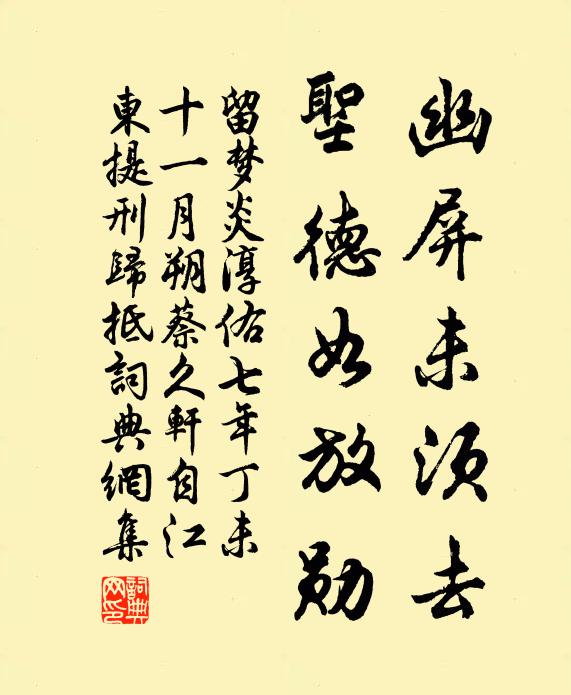 幽屏未须去
聖德如放勋
留梦炎淳佑七年丁未
十一月朔蔡久軒自江
東提刑歸抵詞典網集
詞典网印